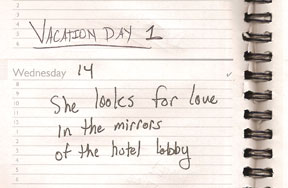 VACATION DAY 1
Wednesday 14
She looks for love
in the mirrors
of the hotel lobby